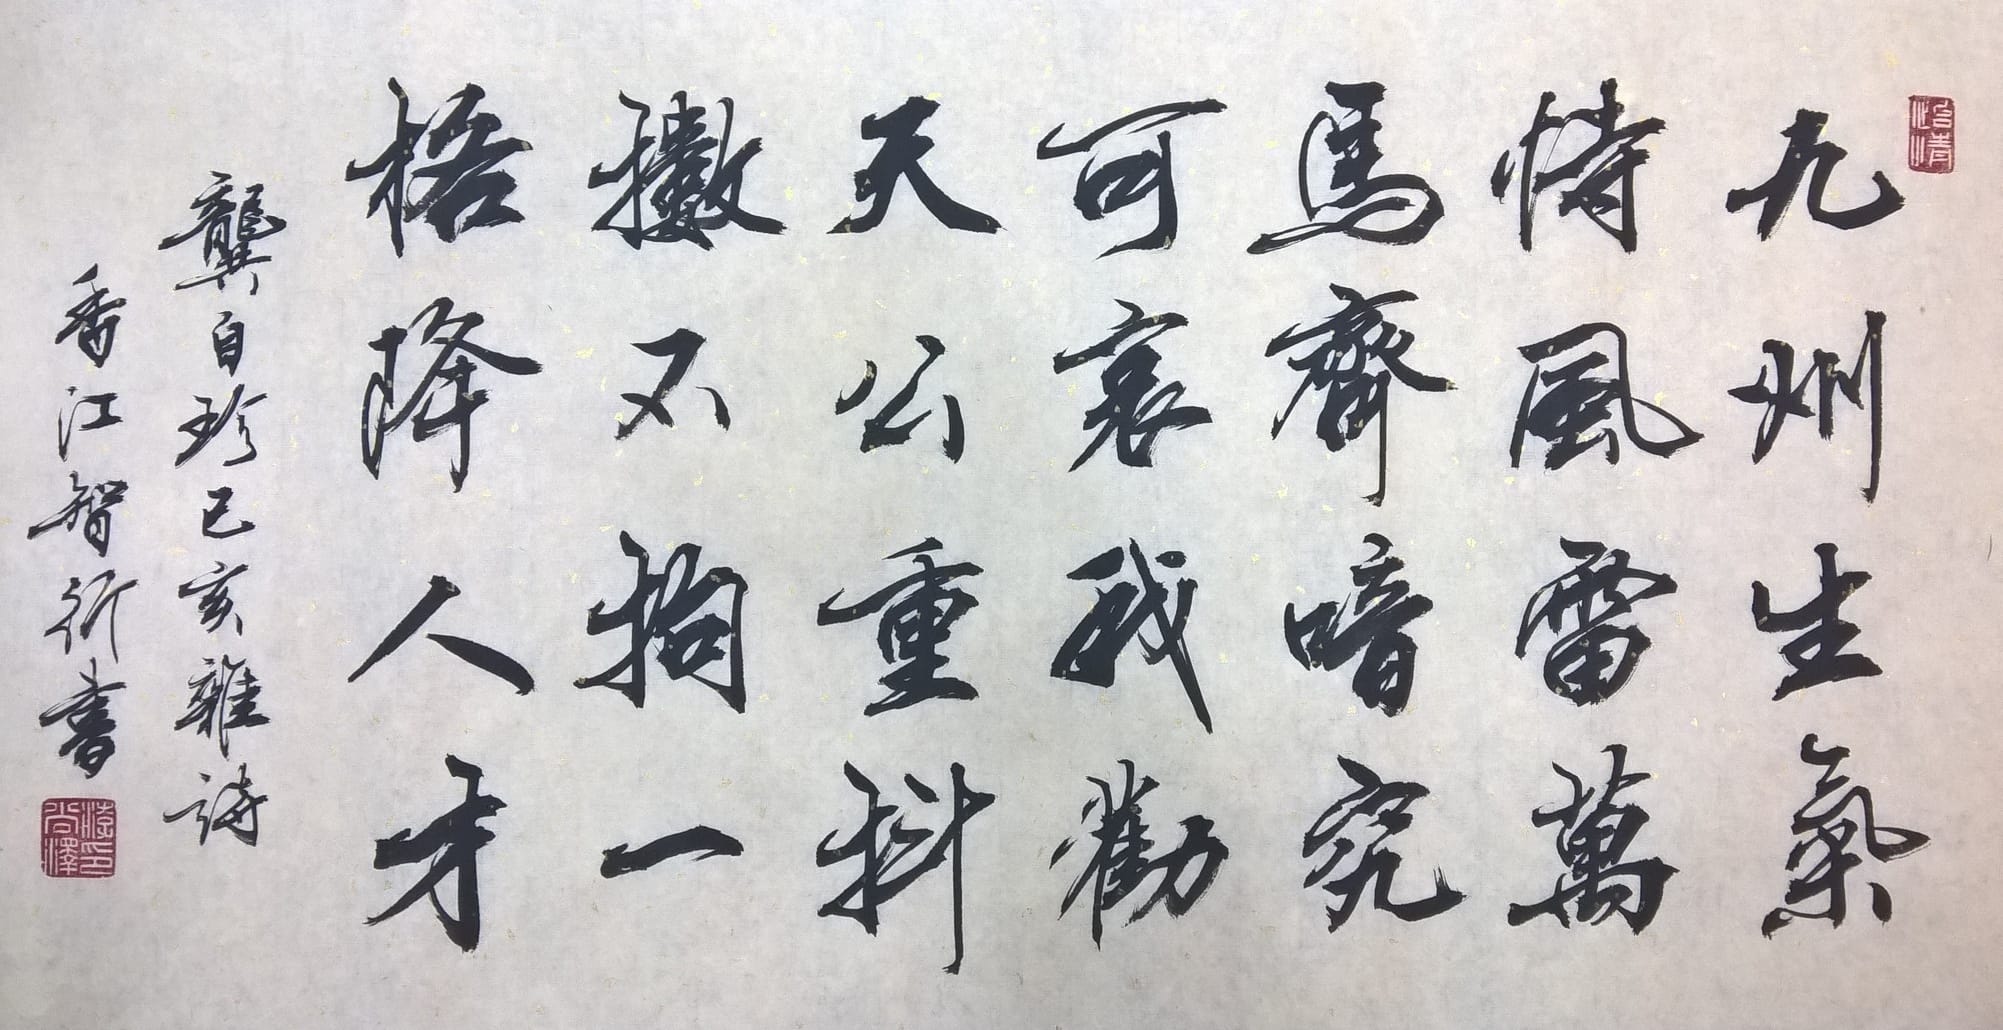 怡情
九州生氣
恃風雷萬
馬齊喑究
可哀我勸
天公重抖
擻不拘一
格降人才
龔自珍己亥雜詩
香江智衍書